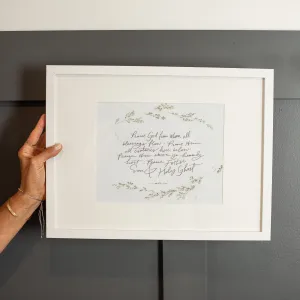 Praise God from Whom all
Blessings Flow. Praise Him
all Creatures here below.
Praise Him above ye Heavenly
Host. Praise Father,
Son & Holy Ghost